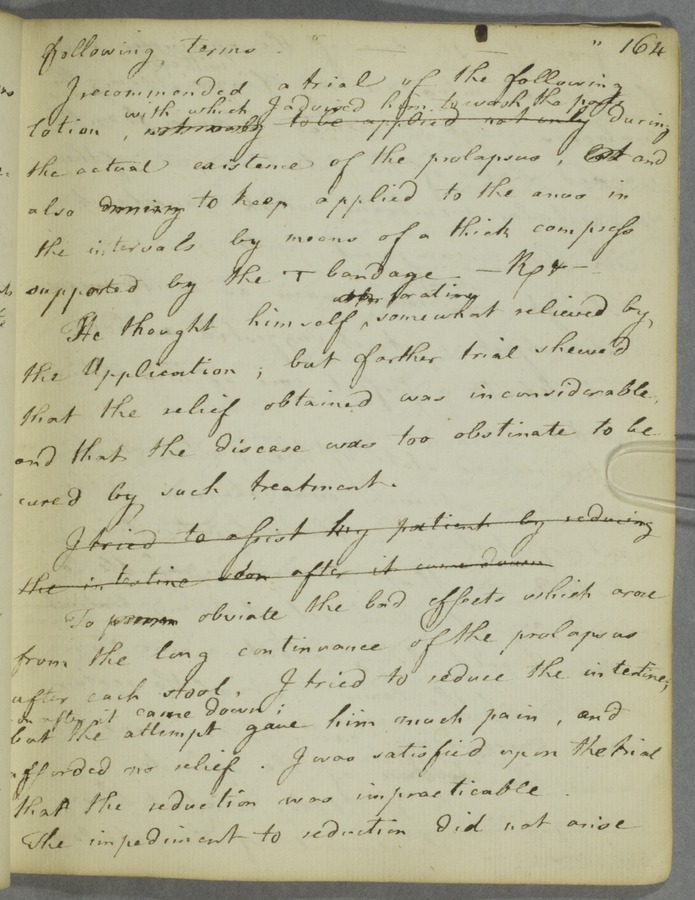 following terms - " — — " 164
I recommended a trial of the following
with which I advised him to wash the parts
lotion, to be applied not only during
the actual existence of the prolapsus, but and
also during to keep applied to the anus in
the intervals by means of a thick compress
supported by the T bandage — Rp —
He thought himself somewhat relieved by
the Application; but farther trial shewed
that the relief obtained was inconsiderable,
and that the disease was too obstinate to be
cured by such treatment.
I tried to assist my patient by reducing
the intestine soon after it came down
To obviate the bad effects which arose
from the long continuance of the prolapsus
after each stool, I tried to reduce the intestine;
soon after it came down;
but the attempt gave him much pain, and
afforded no relief. I was satisfied upon the trial
that the reduction was impracticable.
The impediment to reduction did not arise